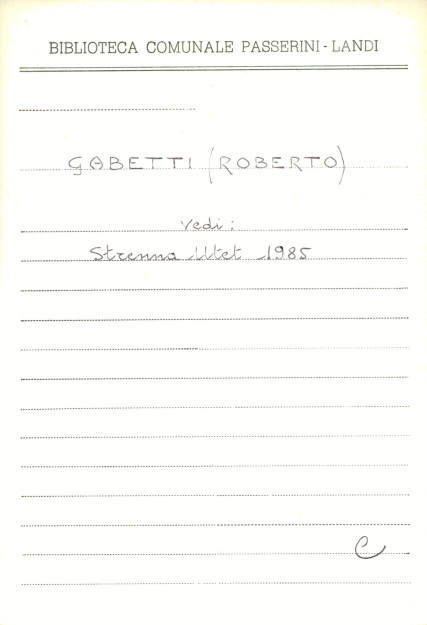 BIBLIOTECA COMUNALE PASSERINI - LANDI
GABETTI (ROBERTO)
Vedi:
Strenna Utet 1985
C